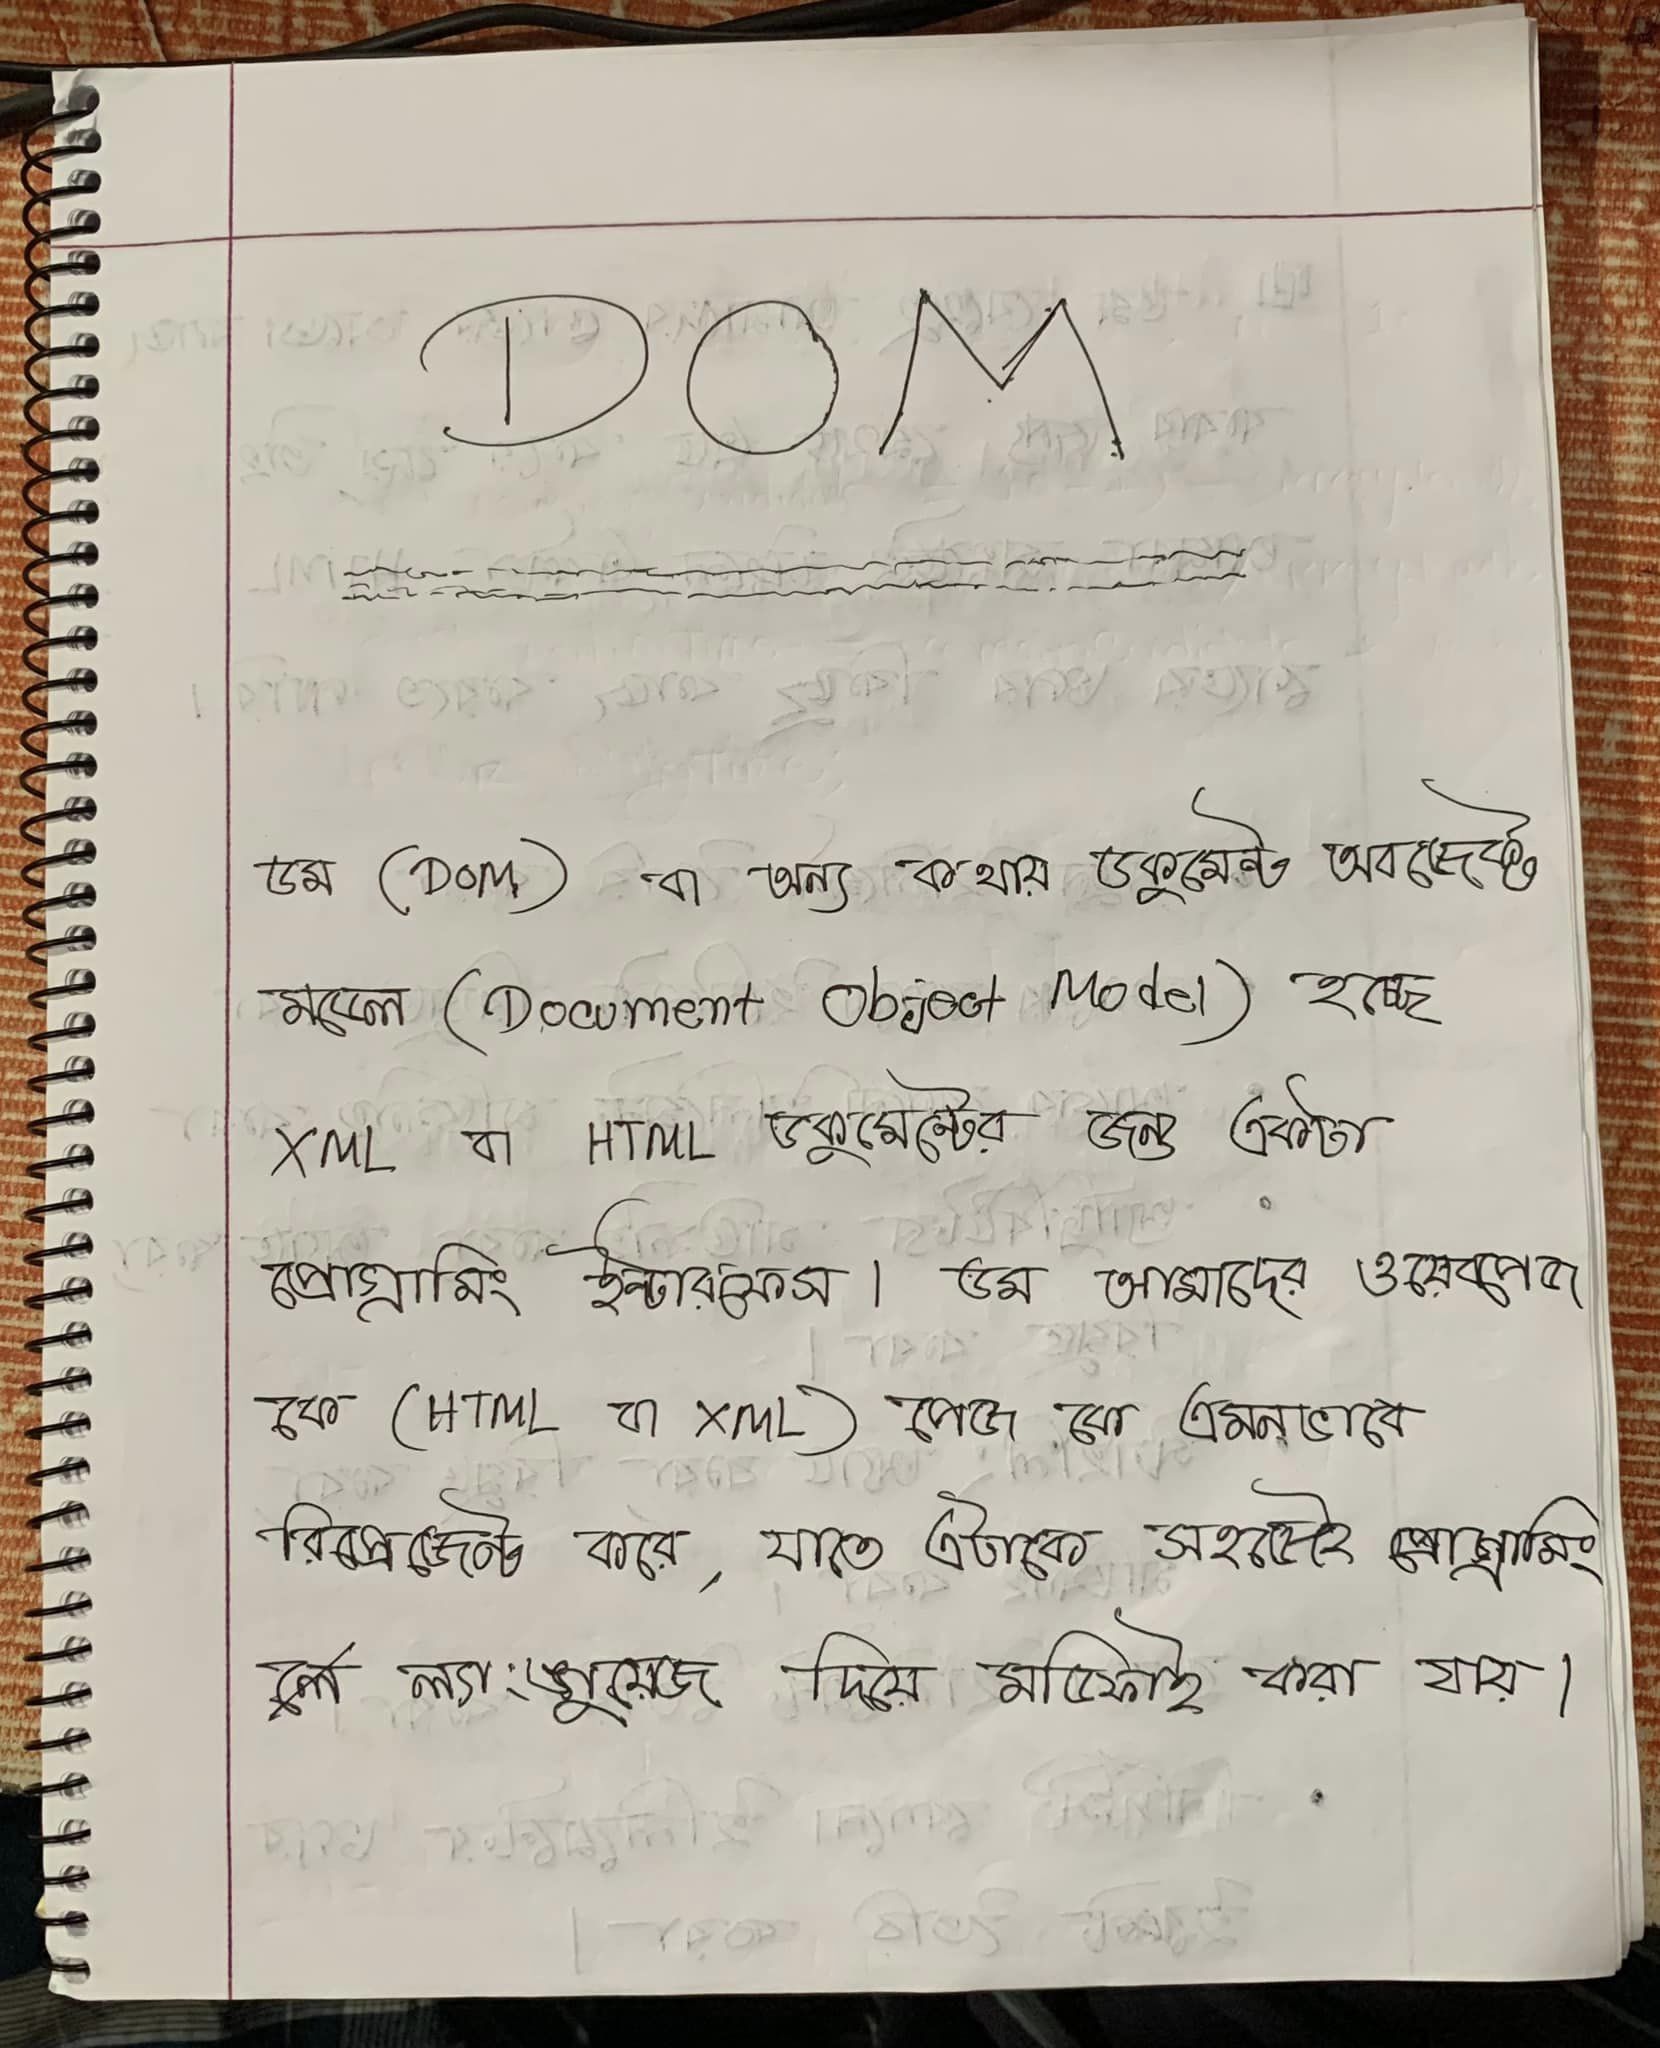 DOM
ডম (DOM) বা অন্য কথায় ডকুমেন্ট অবজেক্ট
মডেল (Document Object Model) হচ্ছে
XML বা HTML ডকুমেন্টের জন্য একটা
প্রোগ্রামিং ইন্টারফেস। ডম আমাদের ওয়েবপেজ
কে (HTML বা XML) পেজ কে এমনভাবে
রিপ্রেজেন্ট করে, যাতে এটাকে সহজেই প্রোগ্রামিং
ল্যাংঙ্গুয়েজ দিয়ে মডিফাই করা যায়।